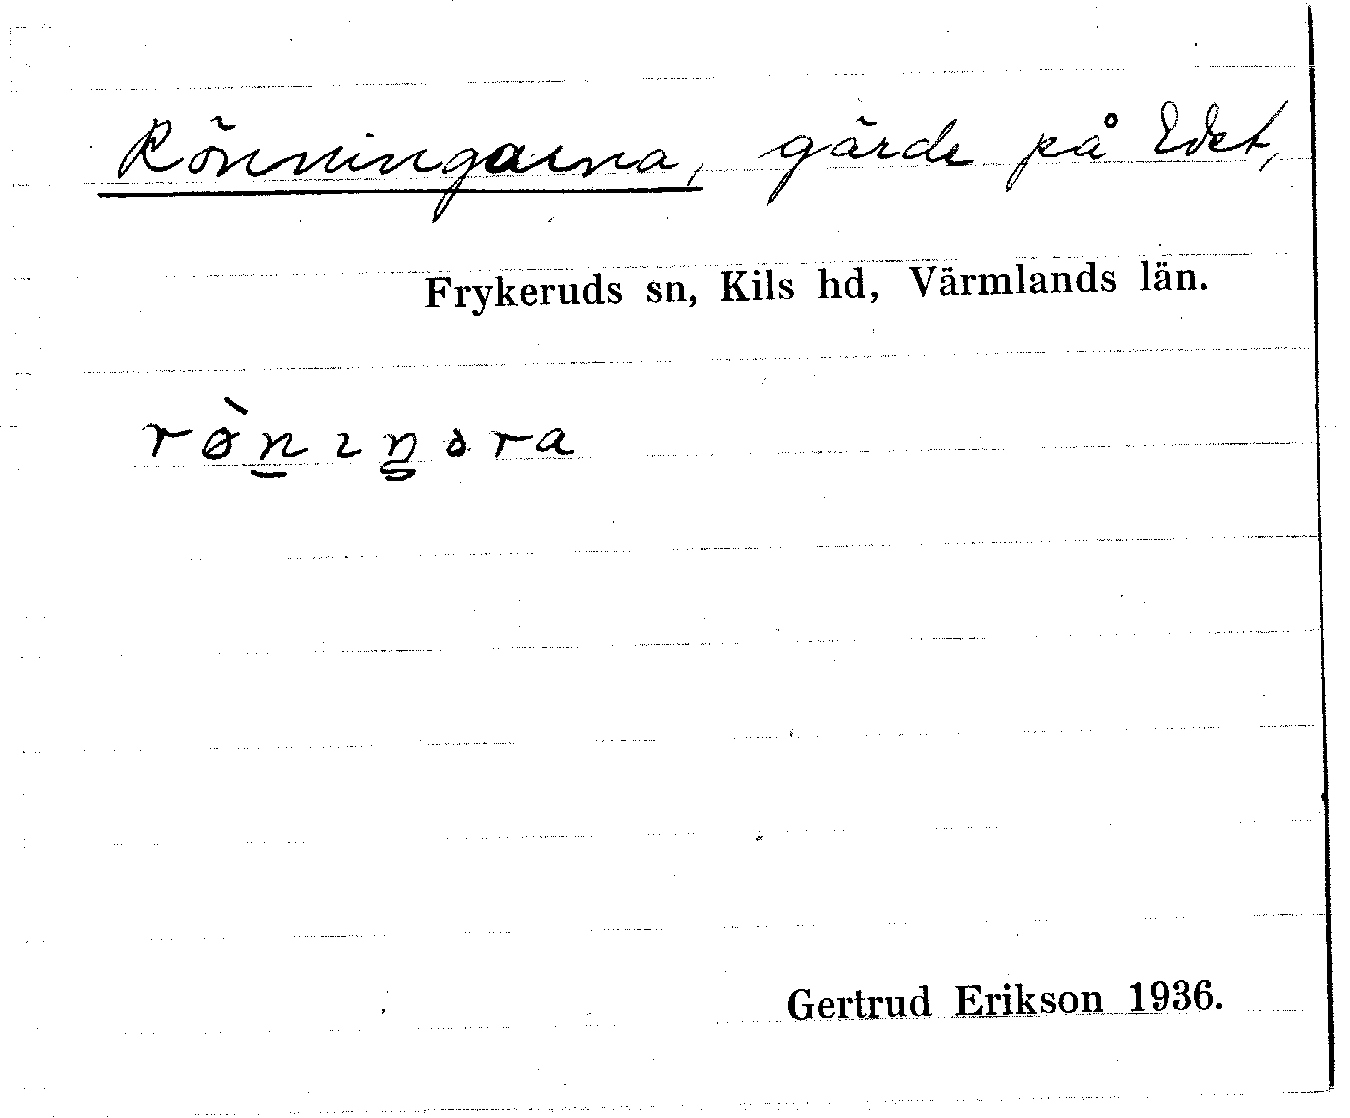 Rönningarna, gärde på Edet,
Frykeruds sn, Kils hd, Värmlands län.
rø̀n̲ıŋ̲əra
Gertrud Erikson 1936.